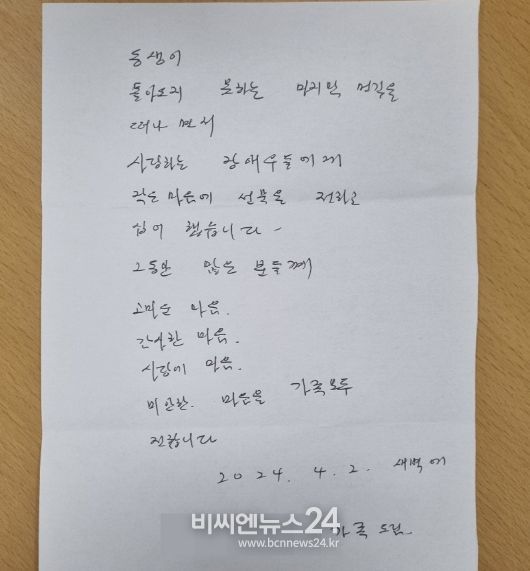 동생이
돌아오지 못하는 마지막 먼길을
떠나면서
사랑하는 장애우들에게
작은 마음에 선물을 전하고
싶어 했습니다 ~
그동안 많은 분들께
고마운 마음.
감사한 마음.
사랑에 마음.
미안한. 마음을 가족모두
전합니다
2024. 4. 2. 새벽에
가족 드림.
비씨엔뉴스24
www.bcnnews24.kr